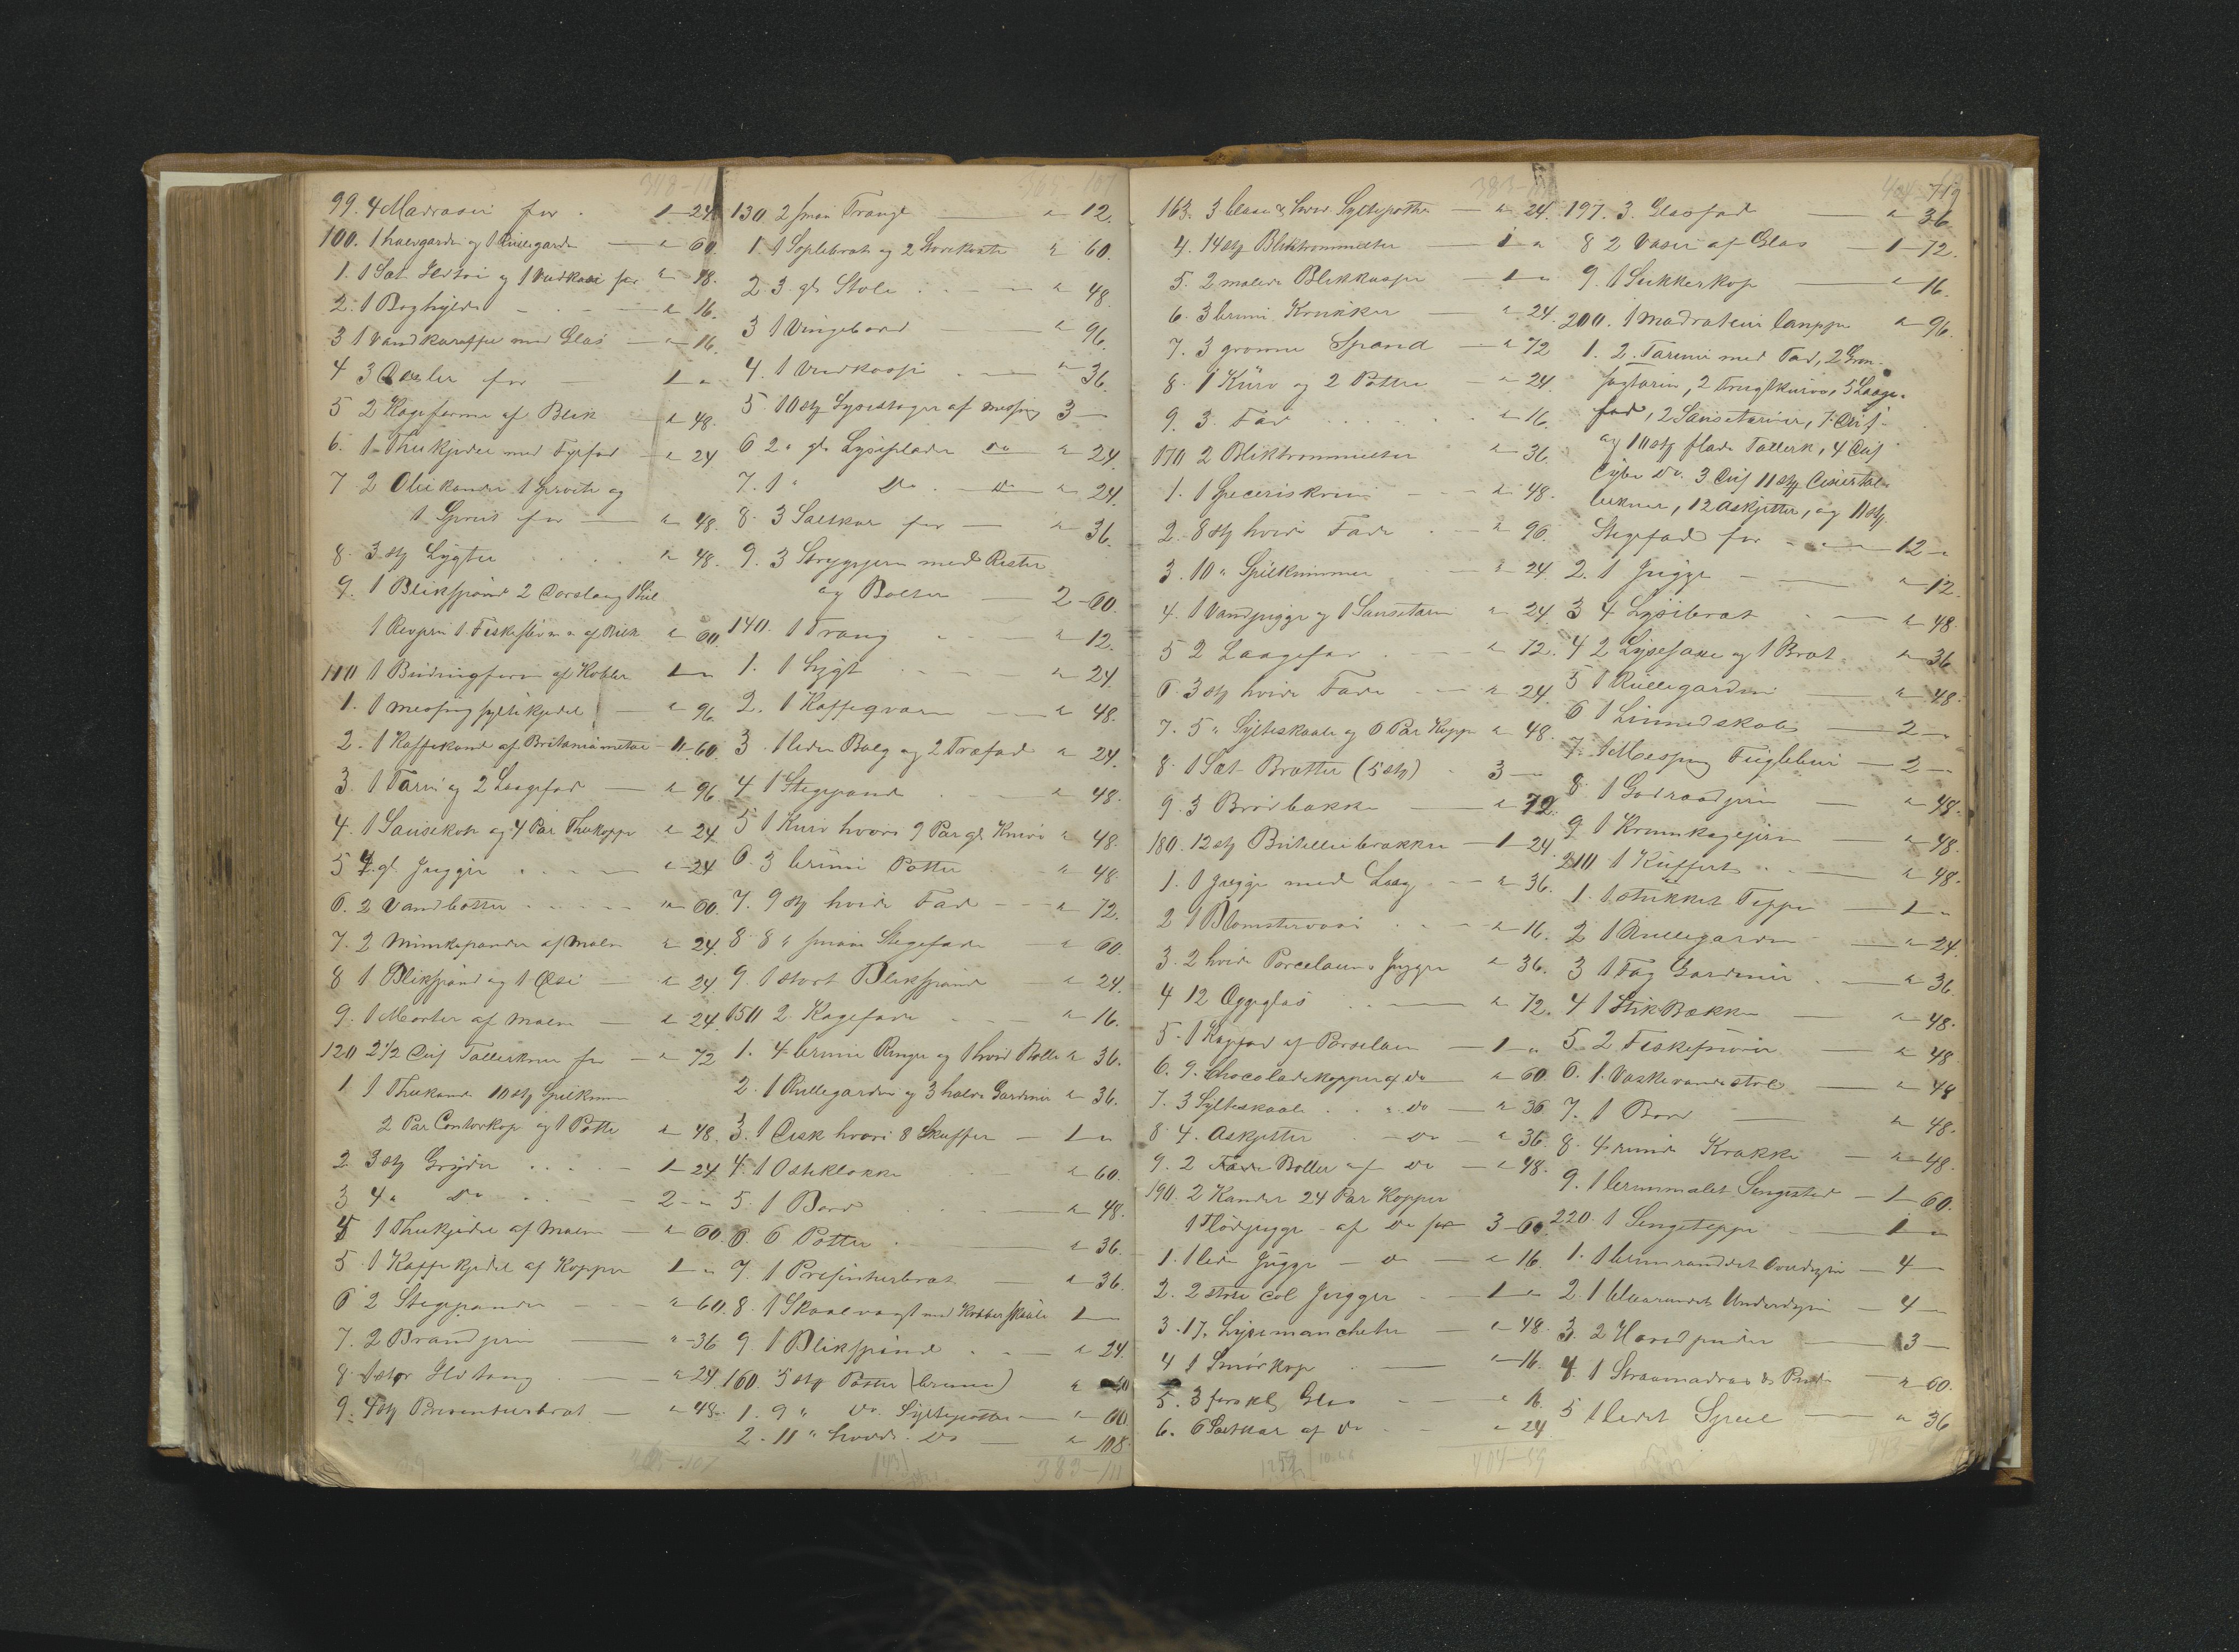 348-11
99. 4 Madrasser for . 1-24.
100. 1 halvgardin og 1 Rullegardin — " 60.
1. 1 Sæt Ildtøi og 1 Vedkasse for " 48.
2. 1 Boghylde - - " 16.
3 1 Vandkaraffe med Glas — " 16.
4 3 for — 1 "
5 2 Kageforme af Blik " 48.
6. 1 Thekjedel med Fyrfad — " 24
7 2 Oliekander 1 og
1 for — " 48.
8. 3 stk Lygter . . " 48.
9. 1 Blikspand 2 Dørslag 1
1 Rivjern 1 af Blik " 60.
110 1 Budingform af Kobber 1 "
1. 1 Messing syltekjedel — " 96.
2. 1 Kaffekande af Britaniametal - 1-60.
3. 1 Tarin og 2 Laagefad — " 96
4. 1 Sausekop og 4 Par Thekopper " 24
5 4 gl. Jugger . . . — " 24
6. 2 Vandbøtter - - - - " 60.
7. 2 Munkepander af Malm " 24.
8 1 Blikspand og 1 Øse — " 24.
9. 1 Morter af Malm — " 24
120 2 1/2 Dus Tallerkner for — " 72
1. 1 Thekande 10 stk Spilkum
2 Par Contorkop og 1 Potte " 48.
2. 3 stk Gryder . . . . 1-24
3 4 " Do . . . - 2 - "
4 1 Thekjedel af Malm — " 60.
5 1 Kaffekjedel af Kopper 1 - "
6 2 Stegepander - - - " 60.
7. 2 Brandjern — " -36
8. 1 stor Ildtang — " 24.
9. 4 stk Presenteerbrat — " 48.
365-107
365-107
130. 2 smaa Trauge — " 12.
1. 1 og 2 " 60.
2. 3 gl. Stole . . . - " 48.
3 1 Vingebord — " 96.
4. 1 Vedkasse . — " 36.
5. 10 stk Lysestager af Messing 3 —
6. 2 " gl. Lyseplader Do " 24.
7. 1 " Do . Do " 24.
8. 3 Saltkar for — " 36.
9. 3 Strygejern med Rester
og Bolter — 2-60.
140. 1 Traug " — " 12.
1. 1 Lygt . . - - " 24.
2. 1 Kaffeqværn — " 48.
3. 1 liden Balg og 2 Træfad " 24.
4 1 Stegepande . - " 48.
5 1 Kurv hvori 9 Par gl. Knive " 48.
6. 3 brune Potter . " 48.
7. 9 stk hvide Fad - - " 72.
8. 8 " smaa Stegefade — " 60.
9. 1 stort Blikspand — " 24.
150 2 Kagefade - - - " 16.
1. 4 brune Ringer og 1 hvid Bolle " 36.
2. 1 Rullegardin og 3 halve Gardiner " 36.
3. 1 Disk hvori 8 Skuffer — 1 - "
4. 1 Osteklokke " 60.
5. 1 Bord . . . — " 48.
6. 6 Potter . — " 36.
7. 1 Presenteerbrat — " 36.
8. 1 Skaalvægt med Kobberskaale 1 —
9. 1 Blikspand . . - " 24.
160. 5 stk Potter (brune) "
1. 9 " Do Syltepotter — " 60.
2. 11 " hvide Do — " 108.
383-111
383-111
163. 3 blaae & hvide Syltepotter — " 24.
4. 14 stk Bliktrommeler — 1 "
5. 2 malede Blikkasser — 1 - "
6. 3 brune Krukker — " 24.
7. 3 grønne Spand — " 72
8. 1 Kurv og 2 Potter — " 24.
9. 3 Fad . . . . . " 16.
170 2 Bliktrommeler " 36.
1. 1 Speceriskrin - - " 48.
2. 8 stk hvide Fade . " 96.
3. 10 " Spilkummer — " 24.
4. 1 Vandjugge og 1 Sausetarin " 24.
5 2 Laagefad . — " 72.
6. 3 stk hvide Fade - - " 24.
7. 5 " Sylteskaale og 6 Par Kopper " 48.
8. 1 Sæt Bratter (5 stk) . 3 —
9. 3 Brødbakker — " 72.
180. 12 stk Butelliebrakker — 1-24.
1. 1 Jugge med Laag - - " 36.
2 1 Blomstervase . - " 16.
3. 2 hvide Porcelains Jugger " 36.
4 12 Æggeglas . . — " 72.
5. 1 Kagfad af Porselain — 1 - "
6. 9. Chocoladekopper af Do — " 60
7. 3 Sylteskaale . . Do — " 36
8. 4. Askjetter . - Do — " 36.
9. 2 Boller af Do — " 48.
190. 2 Kander 24 Par Kopper
1 Flødejugge - af Do for 3-60.
1. 1 liden Jugge - Do — " 16.
2. 2 store Col Jugger . — 1 - "
3. 17. Lysemancheter — " 48.
4 1 Smørkop . — " 16.
5. 3 forskl Glas - - " 16.
6. 6 Saltkar af Do - . " 24
404-59
719
197. 3. Glasfad — " 36.
8 2 Vaser af Glas — 1-72.
9. 1 Sukkerkop — " 16.
200. 1 Moderateur lampe " 96.
1. 2. Tariner med Fad, 2 Grøn-
sagtarin, 2 Frugtkurve, 5 Laage-
fad, 2 Sauseteriner, 7 Dus
og 10 stk flade Tallerk, 4 Dus
dybe Do. 3 Dus 11 stk Desertal-
lerkner, 12 Askjetter, og 11 stk
Stegefad for — 12 - "
2. 1 Jugge - — " 12.
3 4 Lysebrat - — " 48.
4 2 Lysesaxe og 1 Brat " 36
5 1 Rullegardin — " 48.
6 1 Linnedskab — 2 - "
7. 1 Messing Fuglebur — 2 - "
8. 1 Goraadjern — " 48.
9 1 Krumkagejern — " 48.
210 1 Kuffert . . — " 48.
1. 1 stukket Teppe — 1 - "
2 1 Rullegardin — " 24.
3 1 Fag Gardiner . — " 36
4 1 Stikbækken — " 48.
5. 2 Fiskespader — " 48
6. 1. Vaskevandsstol — " 48
7. 1 Bord — " 48.
8. 4 runde Krakke — " 48.
9. 1 brunmalet Sengested — 1-60.
220. 1 Sengeteppe — 1 - "
1. 1 brunrandet Overdyne — 4 —
2. 1 blaarandet Underdyne — 4 - "
3. 2 Hovedpuder — 3 —
4. 1 Straamadras & Pude — " 60.
5 1 lidet Speil — " 36